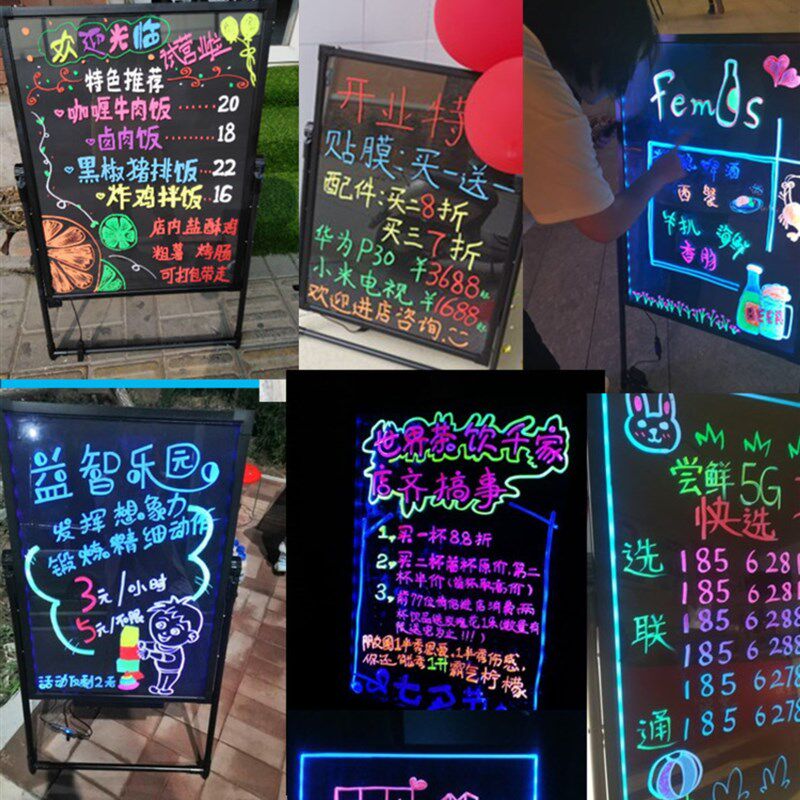 欢迎光临
试营业啦
特色推荐
咖喱牛肉饭……20
卤肉饭……18
黑椒猪排饭……22
炸鸡拌饭……16
店内盐酥鸡
粗薯 烤肠
可打包带走
开业特
贴膜:买一送一
配件:买二8折
买三7折
华为P30 ¥3688
小米电视 ¥1688
欢迎进店咨询
Femos
啤酒
西餐
牛扒 海鲜
益智乐园
发挥想象力
锻炼精细动作
3元/小时
5元/不限
世界茶饮千家
店齐搞事
1、买一杯88折
2、买二杯首杯原价,第二
杯半价(首杯取高价)
3、前77位
朋友圈1半秀恩爱,1半秀伤感,
你还能秀1升霸气柠檬
尝鲜5G
快选
选 185 6281
185 6281
联 185 6288
185 6278
通 185 6278